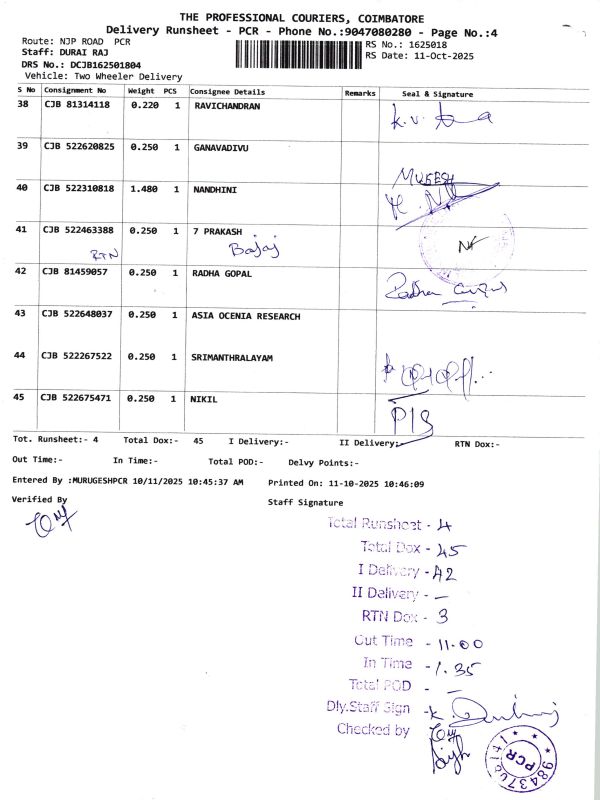 THE PROFESSIONAL COURIERS, COIMBATORE
Delivery Runsheet - PCR - Phone No.:9047080280 - Page No.:4
Route: NJP ROAD PCR
RS No.: 1625018
Staff: DURAI RAJ
RS Date: 11-Oct-2025
DRS No.: DCJB162501804
Vehicle: Two Wheeler Delivery
S No Consignment No Weight PCS Consignee Details Remarks Seal & Signature
38 CJB 81314118 0.220 1 RAVICHANDRAN
39 CJB 522620825 0.250 1 GANAVADIVU
MUKESH
40 CJB 522310818 1.480 1 NANDHINI
41 CJB 522463388 0.250 1 7 PRAKASH
RTN Bajaj
42 CJB 81459057 0.250 1 RADHA GOPAL
43 CJB 522648037 0.250 1 ASIA OCENIA RESEARCH
44 CJB 522267522 0.250 1 SRIMANTHRALAYAM
45 CJB 522675471 0.250 1 NIKIL
Tot. Runsheet:- 4 Total Dox:- 45 I Delivery:- II Delivery:- RTN Dox:-
Out Time:- In Time:- Total POD:- Delvy Points:-
Entered By :MURUGESHPCR 10/11/2025 10:45:37 AM Printed On: 11-10-2025 10:46:09
Verified By Staff Signature
Total Runsheet - 4
Total Dox - 45
I Delivery - 42
II Delivery - —
RTN Dox - 3
Out Time - 11.00
In Time - 1.35
Total POD - —
Dly.Staff Sign
Checked by
PCR